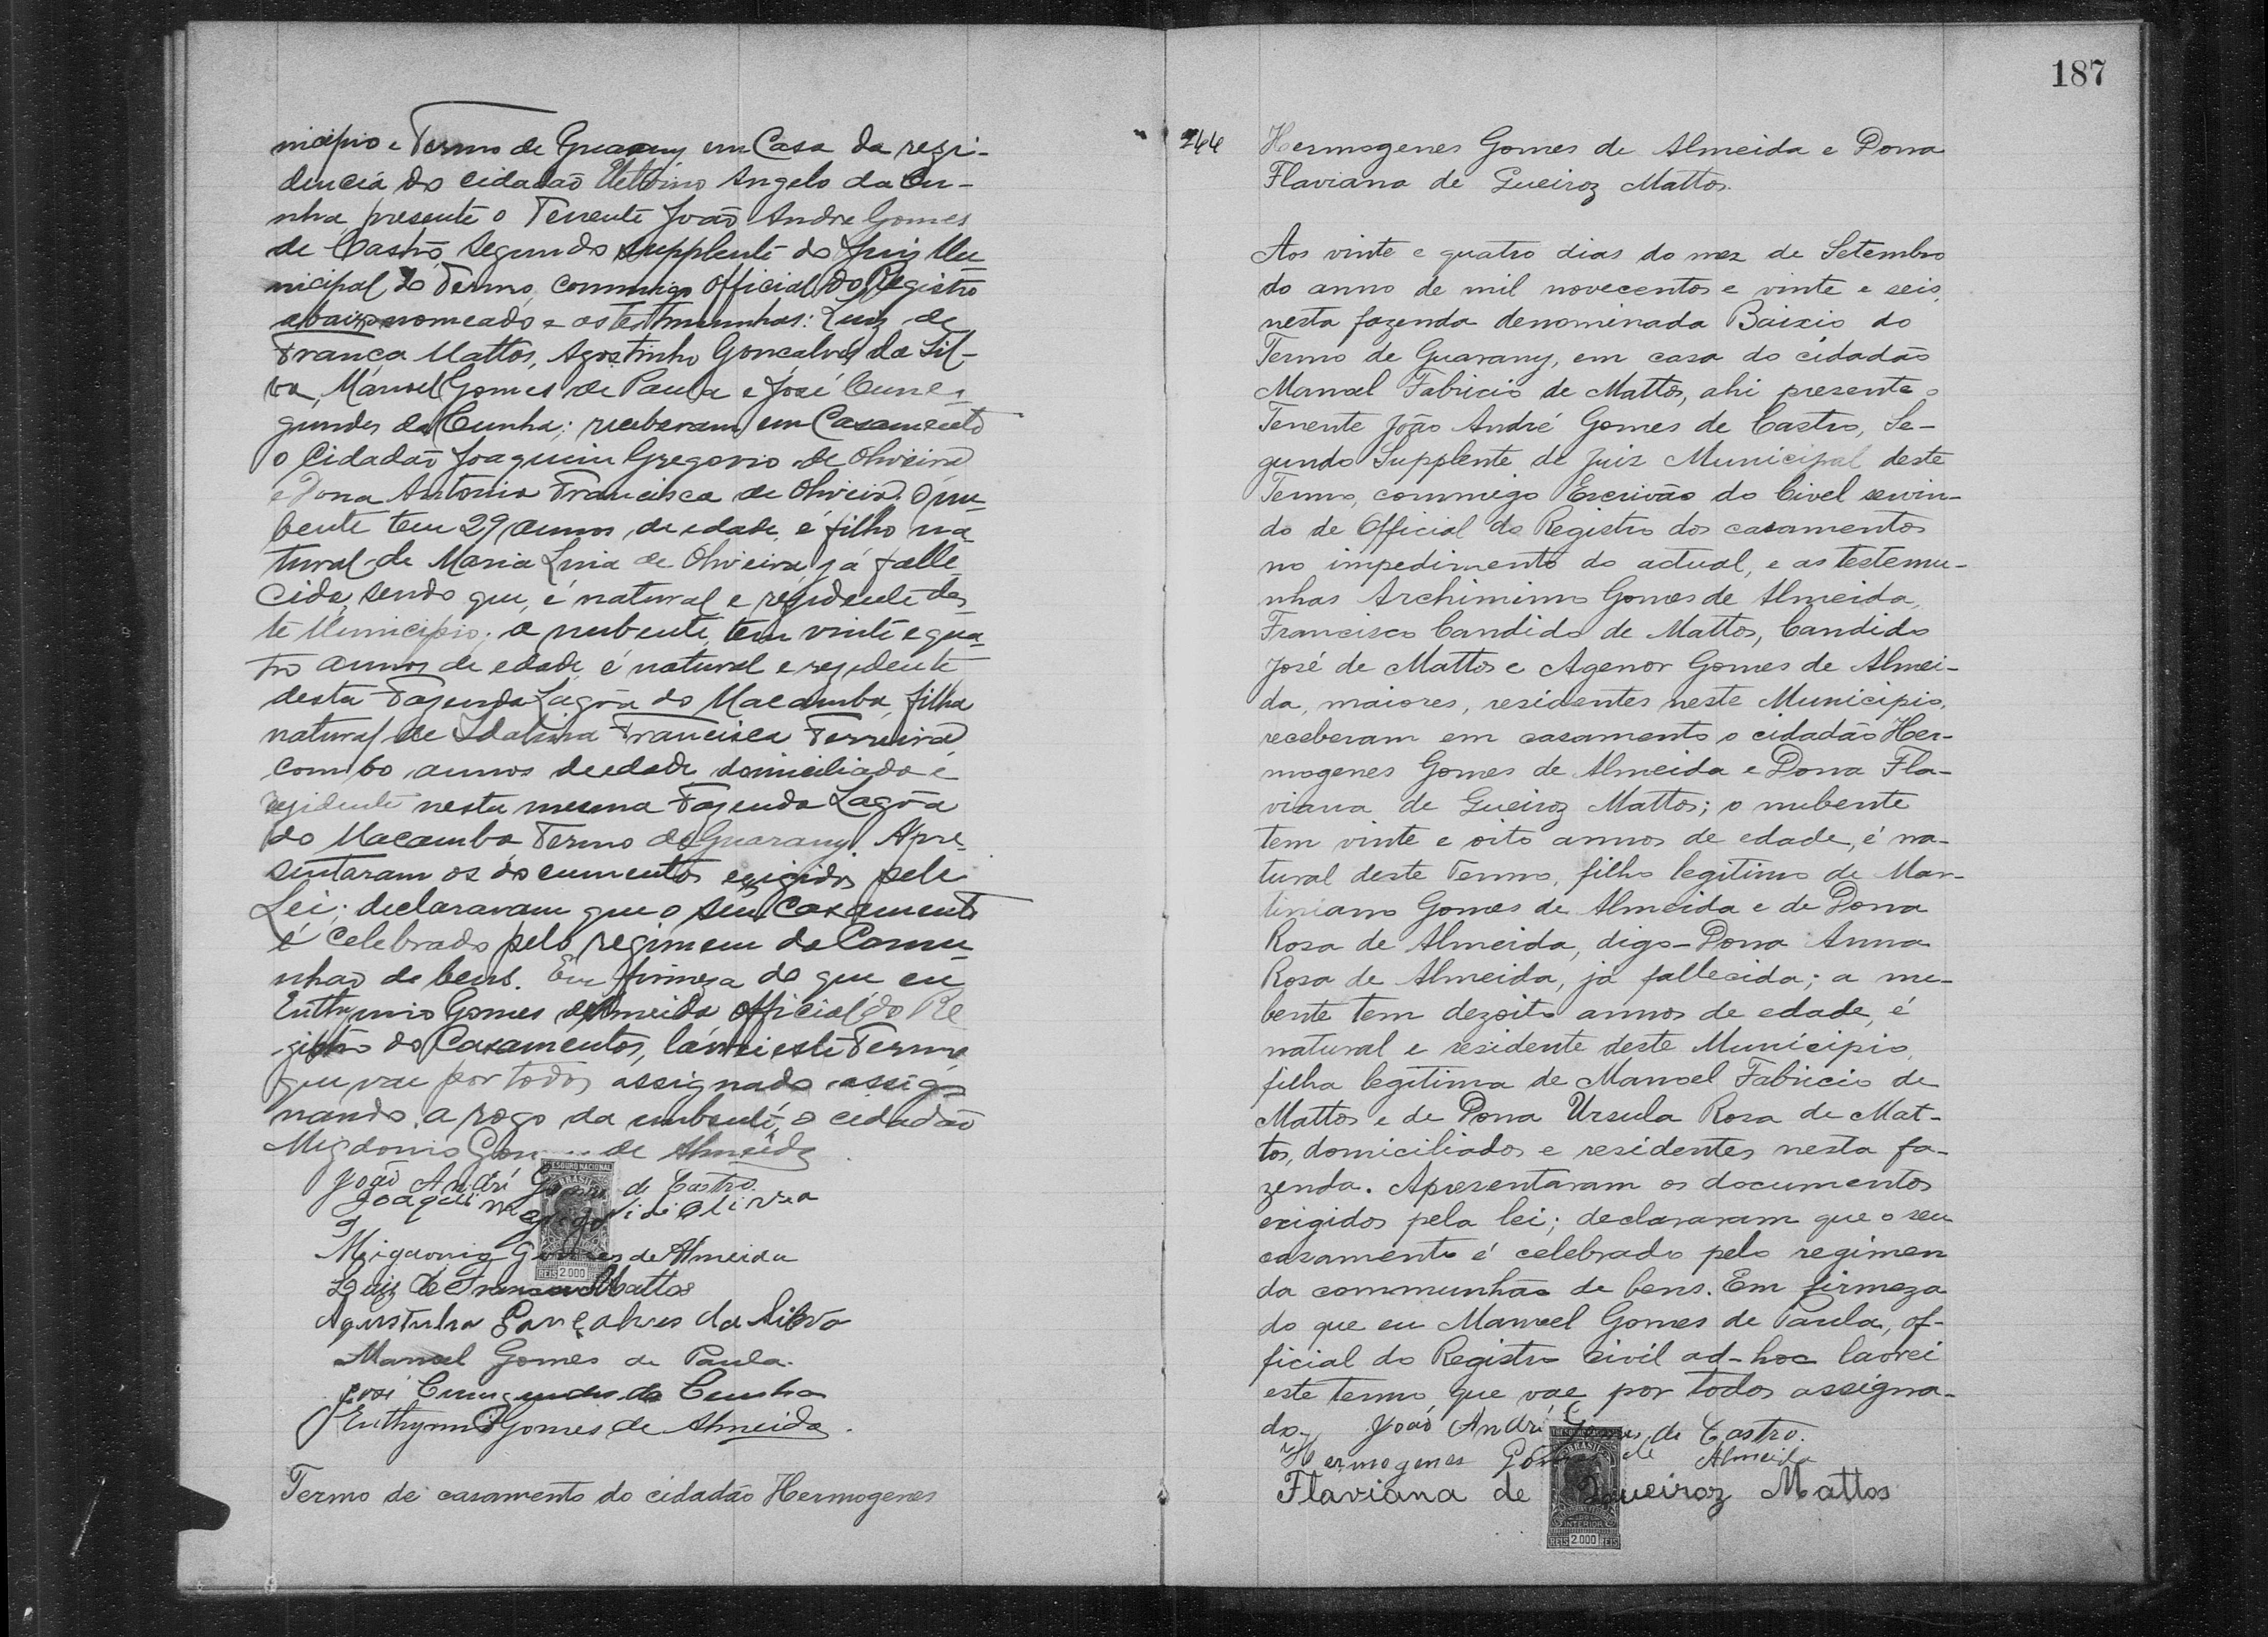 nicipio e Termo de Guarany em Casa da rezi-
dencia do cidadão Angelo da Cu-
nha, presente o Tenente João Andre Gomes
de Castro segundo supplente do Juiz Mu
nicipal do Termo, commigo official do Registro
abaixo nomeado e as testimunhas: Luiz de
França Mattos, Agostinho Gonçalves da Sil-
va, Manoel Gomes de Paula e José Cune-
gundes da Cunha; receberam em Casamento
o Cidadão Joaquim Gregorio de Oliveira
e Dona Antonia Francisca de Oliveira. O nu-
bente tem 29 annos, de edade, é filho na
tural de Maria Livia de Oliveira, já falle-
cida, sendo que, é natural e rezidente des
te Municipio; a nubente, tem vinte e qua
tro annos de edade, é natural e rezidente
desta Fazenda Lagôa do Macambo, filha
natural de Idalina Francisca Ferreira,
com 60 annos de edade, domiciliada e
rezidente nesta mesma Fazenda Lagôa
do Macambo Termo de Guarany. Apre-
sentaram os documentos exigidos pela
Lei; declararam que o seu Casamento
é celebrado pelo regimem da Commu-
nhão de bens. Em firmeza do que eu
Euthymio Gomes de Almeida official do Re
gistro do Casamentos, lavrei este Termo,
que vae por todos assignado assig-
nando, a rogo da nubente, o cidadão
Migdonio Gomes de Almeida
João André Gomes de Castro.
Joaquim Gregorio de Oliveira
Migdonio Gomes de Almeida
Luiz de França Mattos
Agustinho Gonçalves da Silva
Manoel Gomes de Paula.
José Cunegundes da Cunha
Euthymio Gomes de Almeida.
THESOURO NACIONAL
BRASIL
REIS 2.000
Termo de casamento do cidadão Hermogenes
187
244
Hermogenes Gomes de Almeida e Dona
Flaviana de Queiroz Mattos.
Aos vinte e quatro dias do mez de Setembro
do anno de mil novecentos e vinte e seis,
nesta fazenda denominada Baixio do
Termo de Guarany, em casa do cidadão
Manoel Fabricio de Mattos, ahi presente o
Tenente João André Gomes de Castro, Se-
gundo Supplente de Juiz Municipal deste
Termo, commigo Escrivão do Civel servin-
do de Official do Registro dos casamentos
no impedimento do actual, e as testemu-
nhas Archimimo Gomes de Almeida,
Francisco Candido de Mattos, Candido
José de Mattos e Agenor Gomes de Almei-
da, maiores, residentes neste Municipio,
receberam em casamento o cidadão Her-
mogenes Gomes de Almeida e Dona Fla-
viana de Queiroz Mattos; o nubente
tem vinte e oito annos de edade, é na-
tural deste Termo, filho legitimo de Mar-
tiniano Gomes de Almeida e de Dona
Rosa de Almeida, digo - Dona Anna
Rosa de Almeida, já fallecida; a nu-
bente tem dezoito annos de edade, é
natural e residente deste Municipio,
filha legitima de Manoel Fabricio de
Mattos e de Dona Ursula Rosa de Mat-
tos, domiciliados e residentes nesta fa-
zenda. Apresentaram os documentos
exigidos pela lei; declararam que o seu
casamento é celebrado pelo regimen
da communhão de bens. Em firmeza
do que eu Manoel Gomes de Paula, of-
ficial do Registro Civil ad-hoc lavrei
este termo que vae por todos assigna-
do. João André Gomes de Castro.
Hermogenes Gomes de Almeida
Flaviana de Queiroz Mattos
BRASIL
INTERIOR
REIS 2.000 REIS